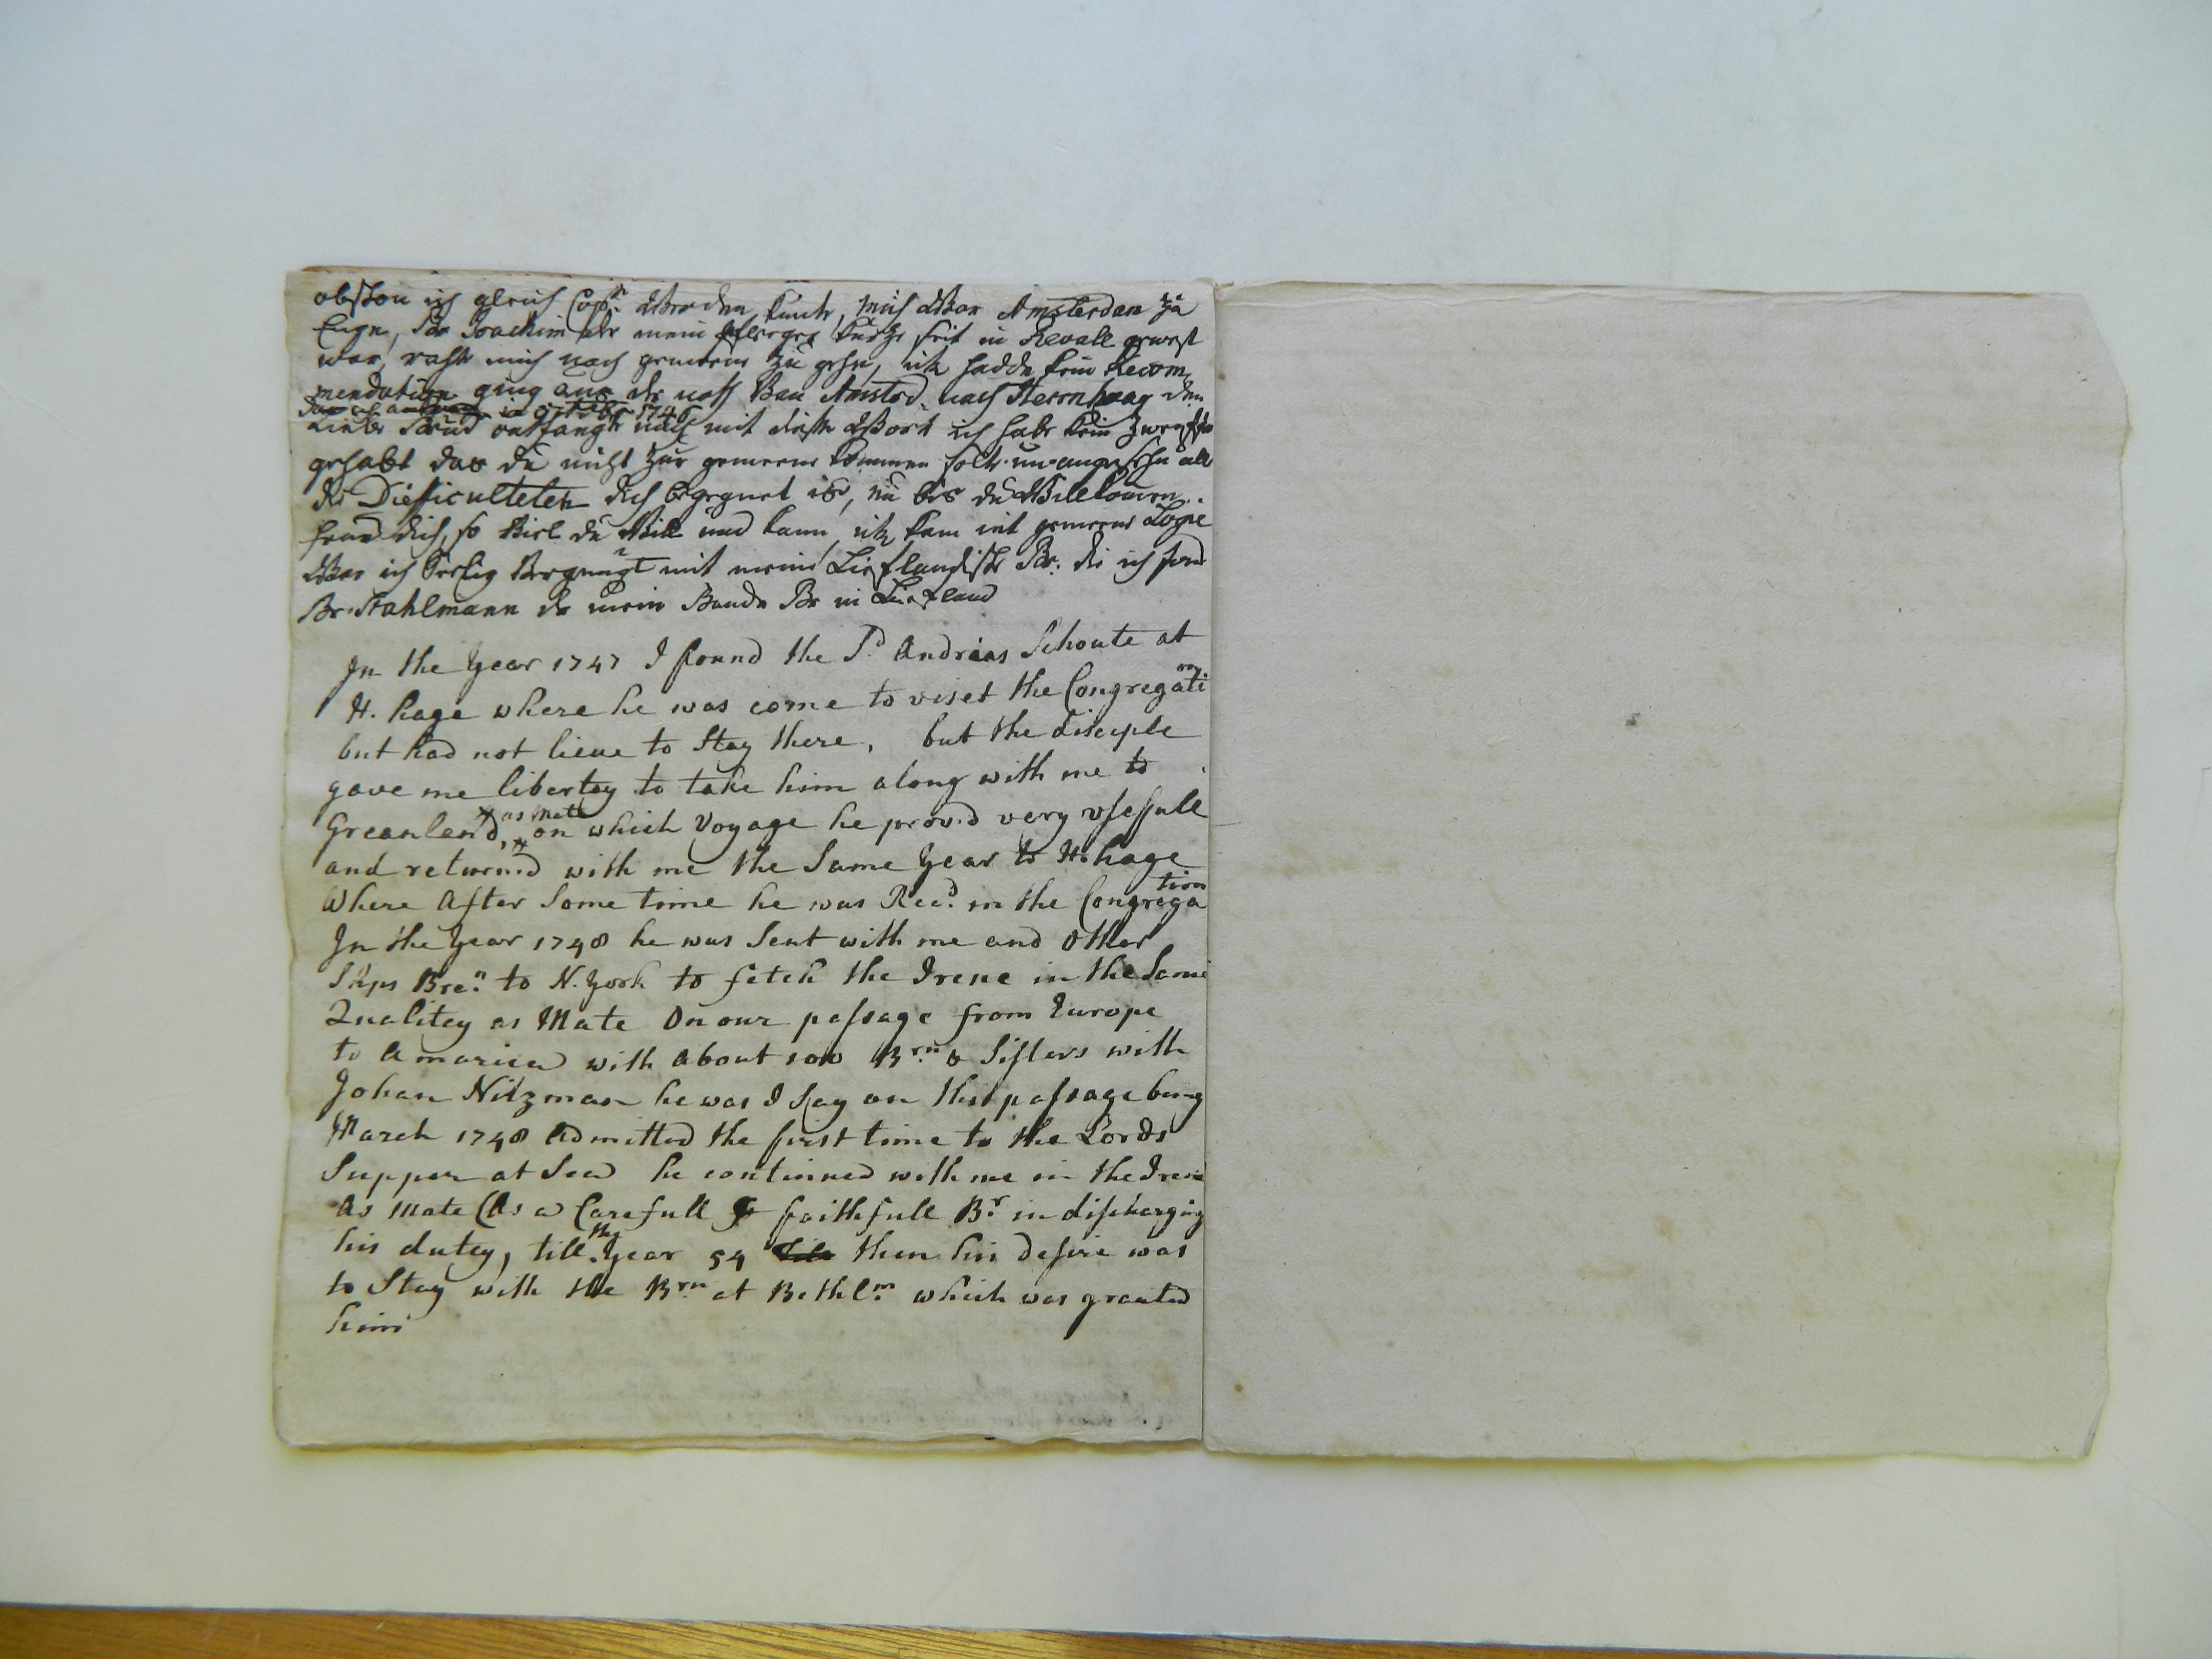 obschon ich gleich Capt: Werden kunte, mich War Amsterdam zu
Enge, Br Joachim der mein kurtze seit in Revall gewest
war, raste mich nach gemeine zu gehn, ich hadde kein Recom,
mendation ging aus der nach Amsterd. nach Herrnhaag den
in October 1746
Lieber Bruder entfangte mich mit diesen Wort ich habe kein Zweiffel
gehabt das du nicht zur gemeine kommen solte un angesehn alle
die Diefficulteten dich begegnet ist, nu bis du Willkomen
so Viel du Will und kann, ich kam int gemeine Logie
War ich Vergnugt mit meine Lieflandische Br: die ich fand
Br. Stahlmann der mein Bande Br in Liefland
In the Year 1747 I found the Sd Andrias Schoute at
H. hage where he was come to viset the Congregation
but had not lieve to Stay there, but the disciple
gave me libertey to take him along with me to
Greanland, as Mate on which Voyage he prov.d very vsefull
and return.d with me the Same Year to H. hage
Where After Some time he was Recd. in the Congregation
In the Year 1748 he was Sent with me and Other
Ships Bren: to N. York to fetch the Irene in the Same
Qualitey as Mate On our passage from Europe
to America with About 100 Brn. & Sisters with
Johan Nitzman he was I Say on this passage being
March 1748 Admitted the first time to the Lords
Supper at Sea he continued with me in the Irene
As Mate (As a Carefull & faithfull Br. in discharging
his dutey, till the Year 54 then his desire was
to Stay with the Brn at Bethlm. which was granted
him